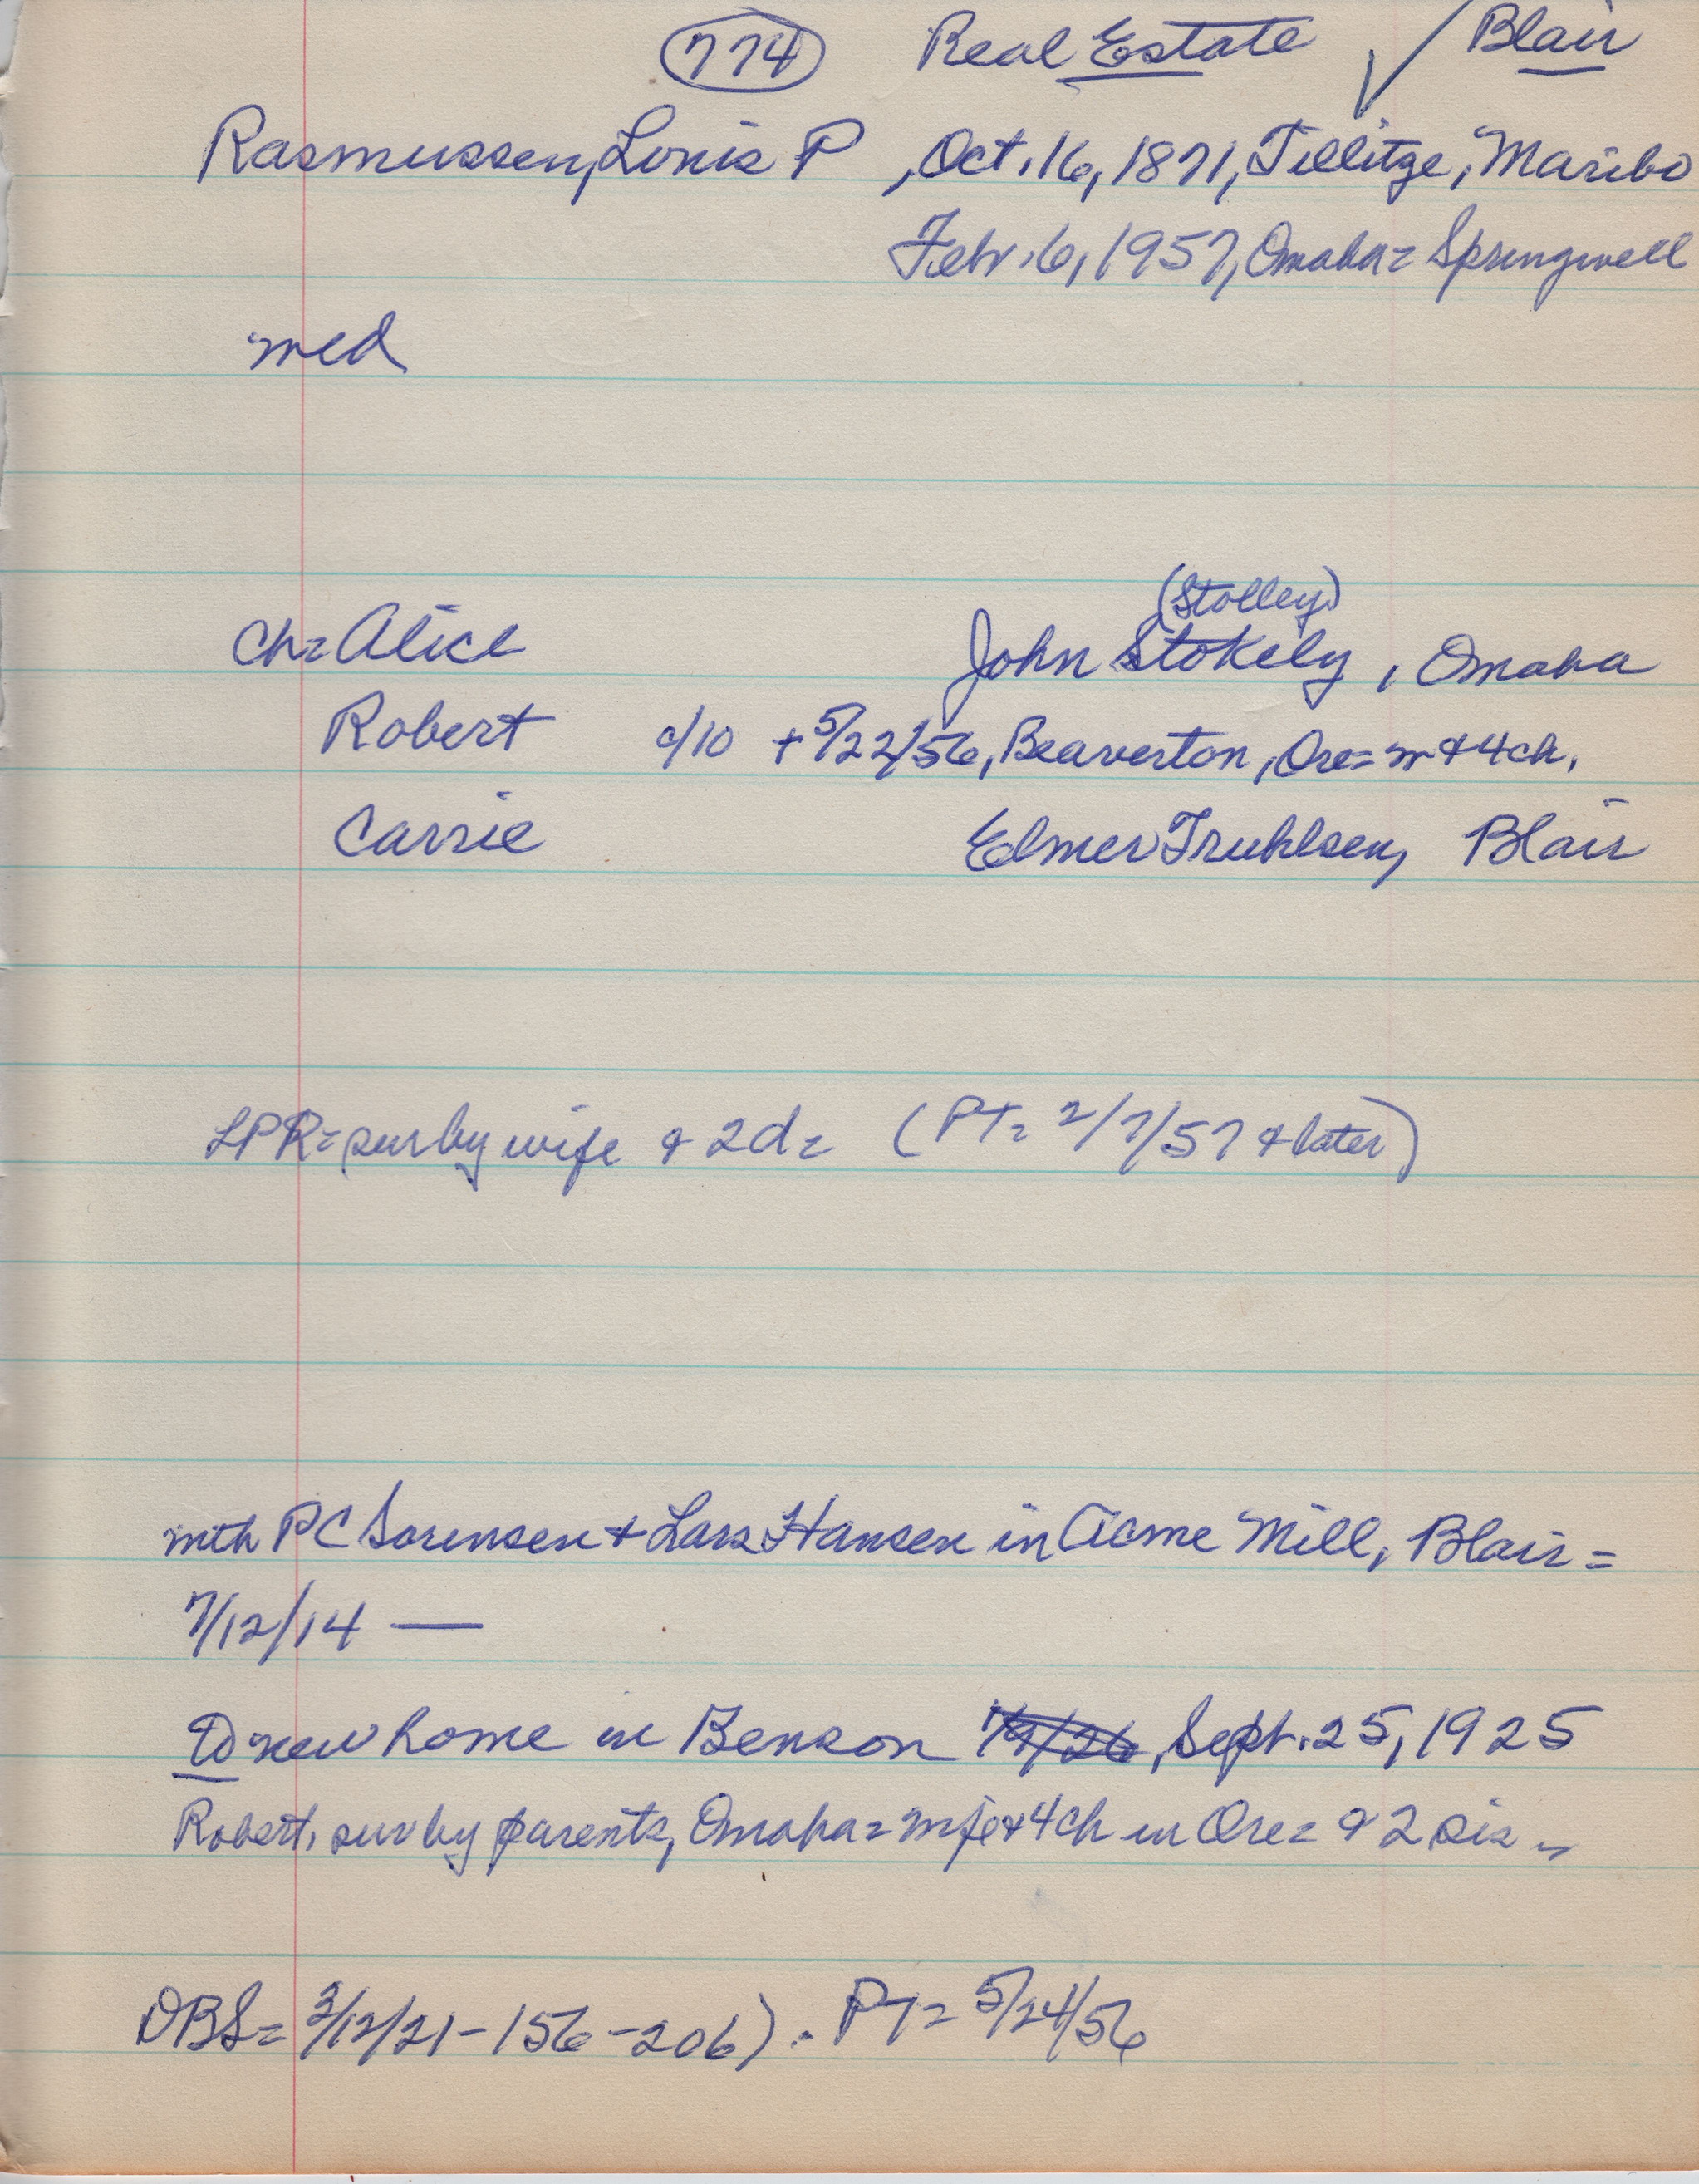 774 Real Estate ✓ Blair
Rasmussen, Louis P , Oct. 16, 1871, Tillitze, Maribo
Febr. 6, 1957, Omaha = Springwell
med
(Stolley)
Ch = Alice John Stokely , Omaha
Robert c/10 + 5/22/56, Beaverton, Ore = m + 4 ch.
Carrie Elmer Truhlsen, Blair
LPR = sur by wife & 2 d = (PT = 2/7/57 & later)
with PC Sorensen + Lars Hansen in Acme Mill, Blair =
7/12/14 —
To new home in Benson , Sept. 25, 1925
Robert, sur by parents, Omaha = wife & 4 ch in Ore = & 2 sis =
DBS = 3/12/21 - 156 - 206) . PT = 5/24/56